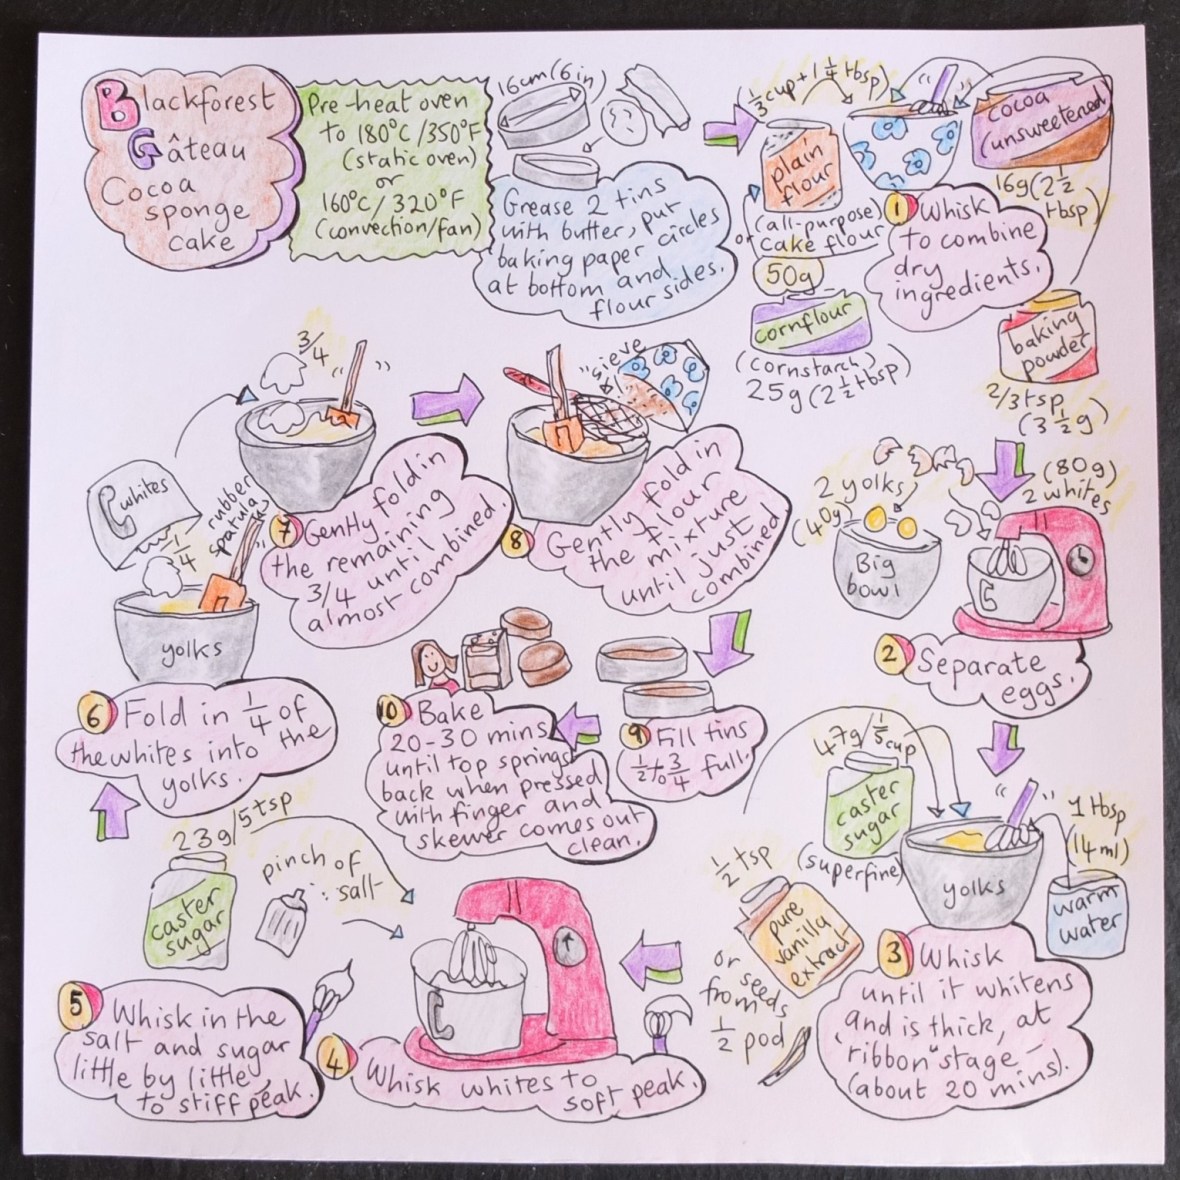 Blackforest
Gâteau
Cocoa
sponge
cake
Pre-heat oven
to 180°C/350°F
(static oven)
or
160°C/320°F
(convection/fan)
16cm(6in)
Grease 2 tins
with butter, put
baking paper circles
at bottom and
flour sides.
(1/3 cup + 1 1/4 tbsp)
plain
flour
(all-purpose)
or cake flour
50g
cornflour
(cornstarch)
25g (2 1/2 tbsp)
cocoa
(unsweetened)
16g (2 1/2
tbsp)
1 Whisk
to combine
dry
ingredients.
baking
powder
2/3 tsp
(3 1/2 g)
2 yolks
(40g)
Big
bowl
(80g)
2 whites
2 Separate
eggs.
47g/1/5 cup
caster
sugar
(superfine)
1/2 tsp
pure
vanilla
extract
or
seeds
from
1/2 pod
yolks
1 tbsp
(14ml)
warm
water
3 Whisk
until it whitens
and is thick, at
"ribbon" stage -
(about 20 mins).
4 Whisk whites to
soft peak.
23g/5tsp
caster
sugar
pinch of
salt
5 Whisk in the
salt and sugar
little by little
to stiff peak.
whites
1/4
rubber
spatula
yolks
6 Fold in 1/4 of
the whites into the
yolks.
3/4
7 Gently fold in
the remaining
3/4 until
almost combined.
sieve
8 Gently fold in
the flour
mixture
until just
combined
9 Fill tins
1/2 to 3/4 full.
10 Bake
20-30 mins
until top springs
back when pressed
with finger and
skewer comes out
clean.